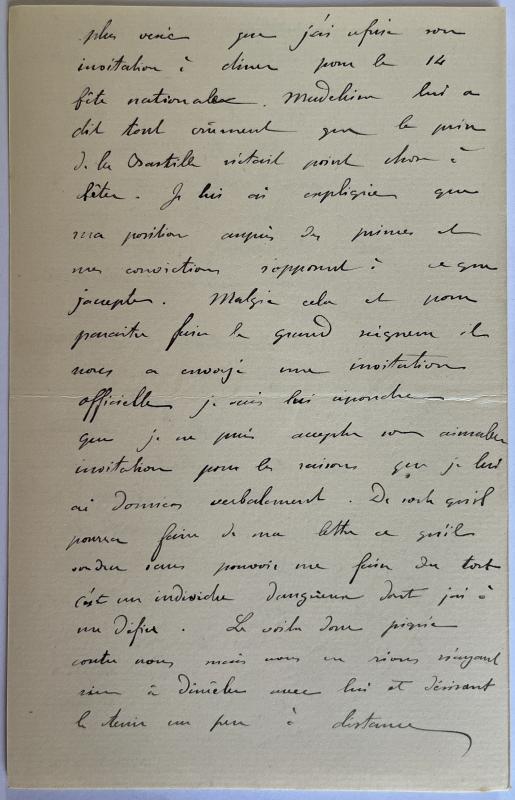 plus vexé que j'ai refusé son
invitation à diner pour le 14
fête nationale. Madeleine lui a
dit tout crûment que la prise
de la Bastille n'était point chose à
fêter. Je lui ai expliqué que
ma position auprès des princes et
mes convictions s'opposent à ce que
j'accepte. Malgré cela et pour
paraitre faire le grand seigneur il
nous a envoyé une invitation
officielle je vais lui répondre
que je ne puis accepter son aimable
invitation pour les raisons que je lui
ai données verbalement. De sorte qu'il
pourra faire de ma lettre ce qu'il
voudra sans pouvoir me faire du tort
c'est un individu dangereux dont j'ai à
me défier. Le voilà donc
contre nous mais nous en rions n'ayant
rien à démêler avec lui et désirant
le tenir un peu à distance